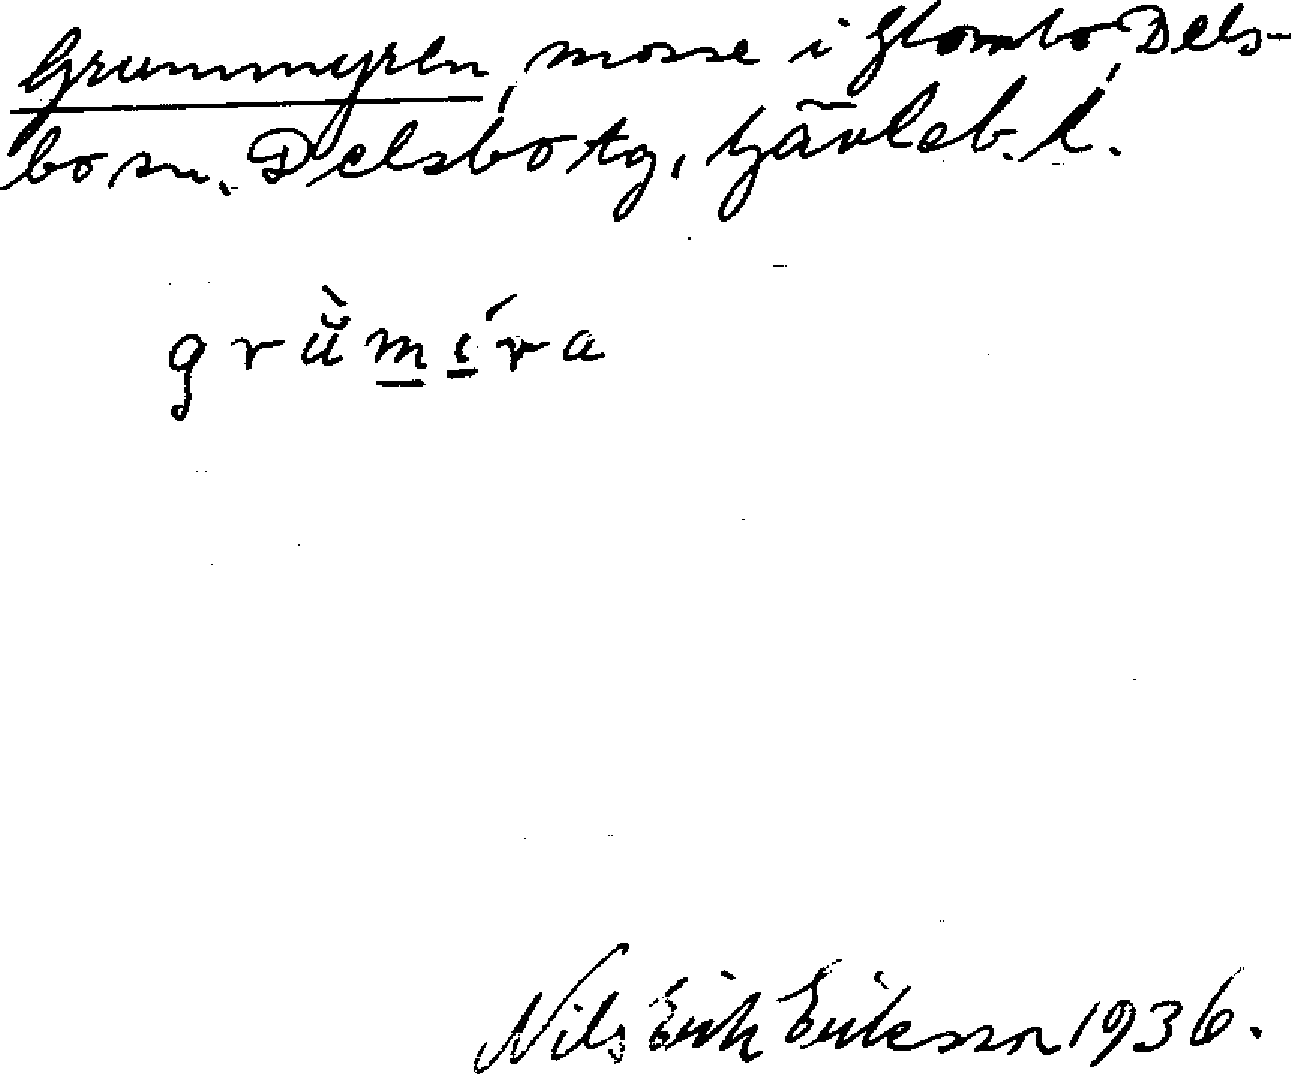 Grummyren, mosse i Glombo, Dels-
bo sn. Delsbo tg, Gävleb. l.
grŭ̀mı́ra
Nils Erik Eriksson 1936.